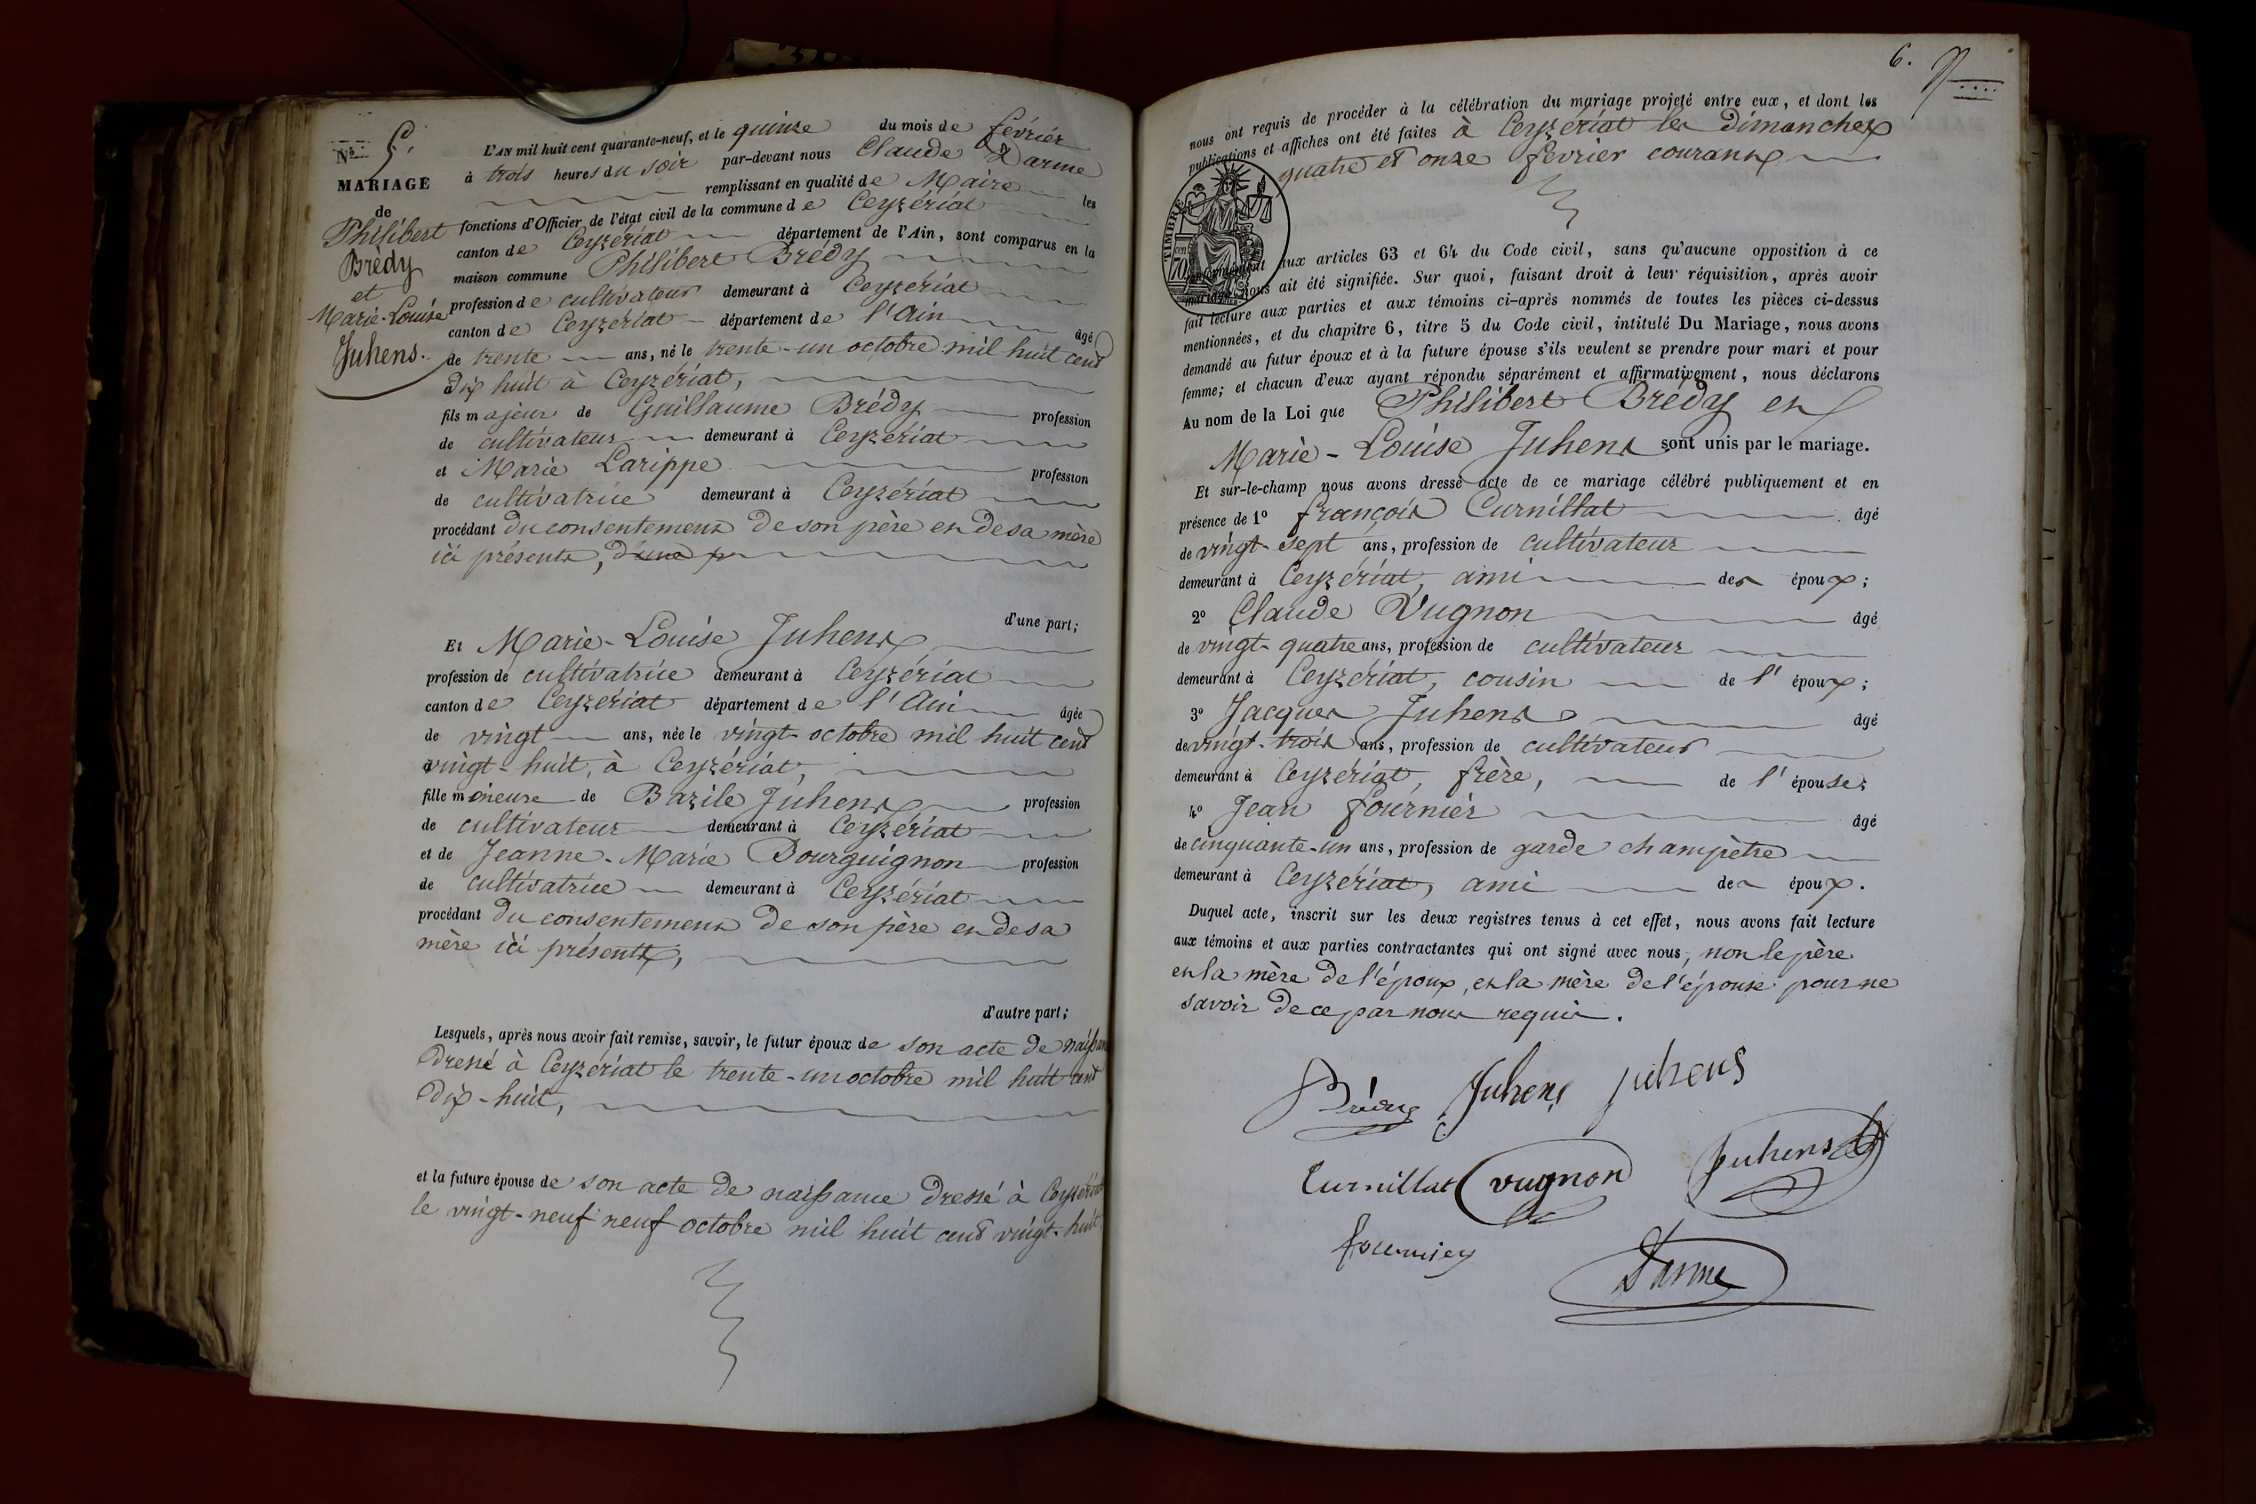 N° 5.
MARIAGE
de
Philibert
Brédy
et
Marie-Louise
Juhens.
L'AN mil huit cent quarante-neuf, et le quinze du mois de février
à trois heures du soir par-devant nous Claude Darme
remplissant en qualité de Maire les
fonctions d'Officier de l'état civil de la commune de Ceyzériat
canton de Ceyzériat département de l'Ain, sont comparus en la
maison commune Philibert Brédy
profession de cultivateur demeurant à Ceyzériat
canton de Ceyzériat département de l'Ain âgé
de trente ans, né le trente-un octobre mil huit cent
dix huit à Ceyzériat,
fils majeur de Guillaume Brédy profession
de cultivateur demeurant à Ceyzériat
et Marie Larippe profession
de cultivatrice demeurant à Ceyzériat
procédant du consentement de son père et de sa mère
ici présents, d'une p
d'une part;
Et Marie-Louise Juhens
profession de cultivatrice demeurant à Ceyzériat
canton de Ceyzériat département de l'Ain âgée
de vingt ans, née le vingt-octobre mil huit cent
vingt-huit, à Ceyzériat,
fille mineure de Bazile Juhens profession
de cultivateur demeurant à Ceyzériat
et de Jeanne-Marie Bourguignon profession
de cultivatrice demeurant à Ceyzériat
procédant du consentement de son père et de sa
mère ici présents,
d'autre part;
Lesquels, après nous avoir fait remise, savoir, le futur époux de son acte de naissance
dressé à Ceyzériat le trente-un octobre mil huit cent
dix-huit,
et la future épouse de son acte de naissance dressé à Ceyzériat
le vingt-neuf neuf octobre mil huit cent vingt-huit
6.
nous ont requis de procéder à la célébration du mariage projeté entre eux, et dont les
publications et affiches ont été faites à Ceyzériat les dimanches
quatre et onze février courant
TIMBRE
conformément aux articles 63 et 64 du Code civil, sans qu'aucune opposition à ce
mariage nous ait été signifiée. Sur quoi, faisant droit à leur réquisition, après avoir
fait lecture aux parties et aux témoins ci-après nommés de toutes les pièces ci-dessus
mentionnées, et du chapitre 6, titre 5 du Code civil, intitulé Du Mariage, nous avons
demandé au futur époux et à la future épouse s'ils veulent se prendre pour mari et pour
femme; et chacun d'eux ayant répondu séparément et affirmativement, nous déclarons
Au nom de la Loi que Philibert Brédy et
Marie-Louise Juhens sont unis par le mariage.
Et sur-le-champ nous avons dressé acte de ce mariage célébré publiquement et en
présence de 1° françois Curnillat âgé
de vingt-sept ans, profession de cultivateur
demeurant à Ceyzériat, ami des époux;
2° Claude Vugnon âgé
de vingt-quatre ans, profession de cultivateur
demeurant à Ceyzériat, cousin de l'époux;
3° Jacques Juhens âgé
de vingt-trois ans, profession de cultivateur
demeurant à Ceyzériat, frère, de l'épouse;
4° Jean fournier âgé
de cinquante-un ans, profession de garde champêtre
demeurant à Ceyzériat, ami des époux.
Duquel acte, inscrit sur les deux registres tenus à cet effet, nous avons fait lecture
aux témoins et aux parties contractantes qui ont signé avec nous, non le père
et la mère de l'époux, et la mère de l'épouse pour ne
savoir de ce par nous requis.
Brédy Juhens juhens
Curnillat vugnon Juhens
fournier
Darme